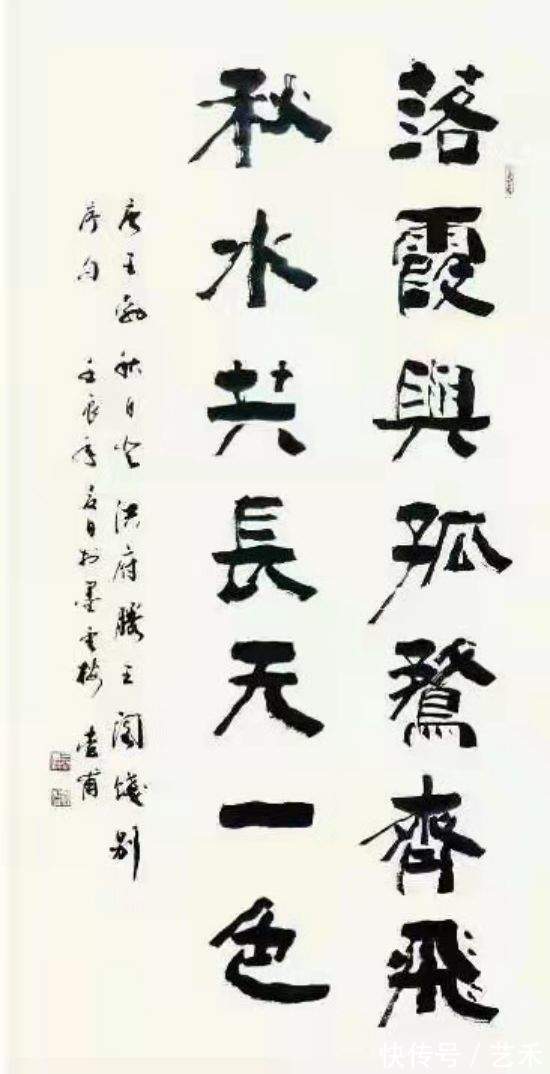 落霞與孤鶩齊飛
秋水共長天一色
唐王勃秋日登洪府滕王閣餞别
序句 壬辰年夏日於墨雲樓
快传号/艺禾